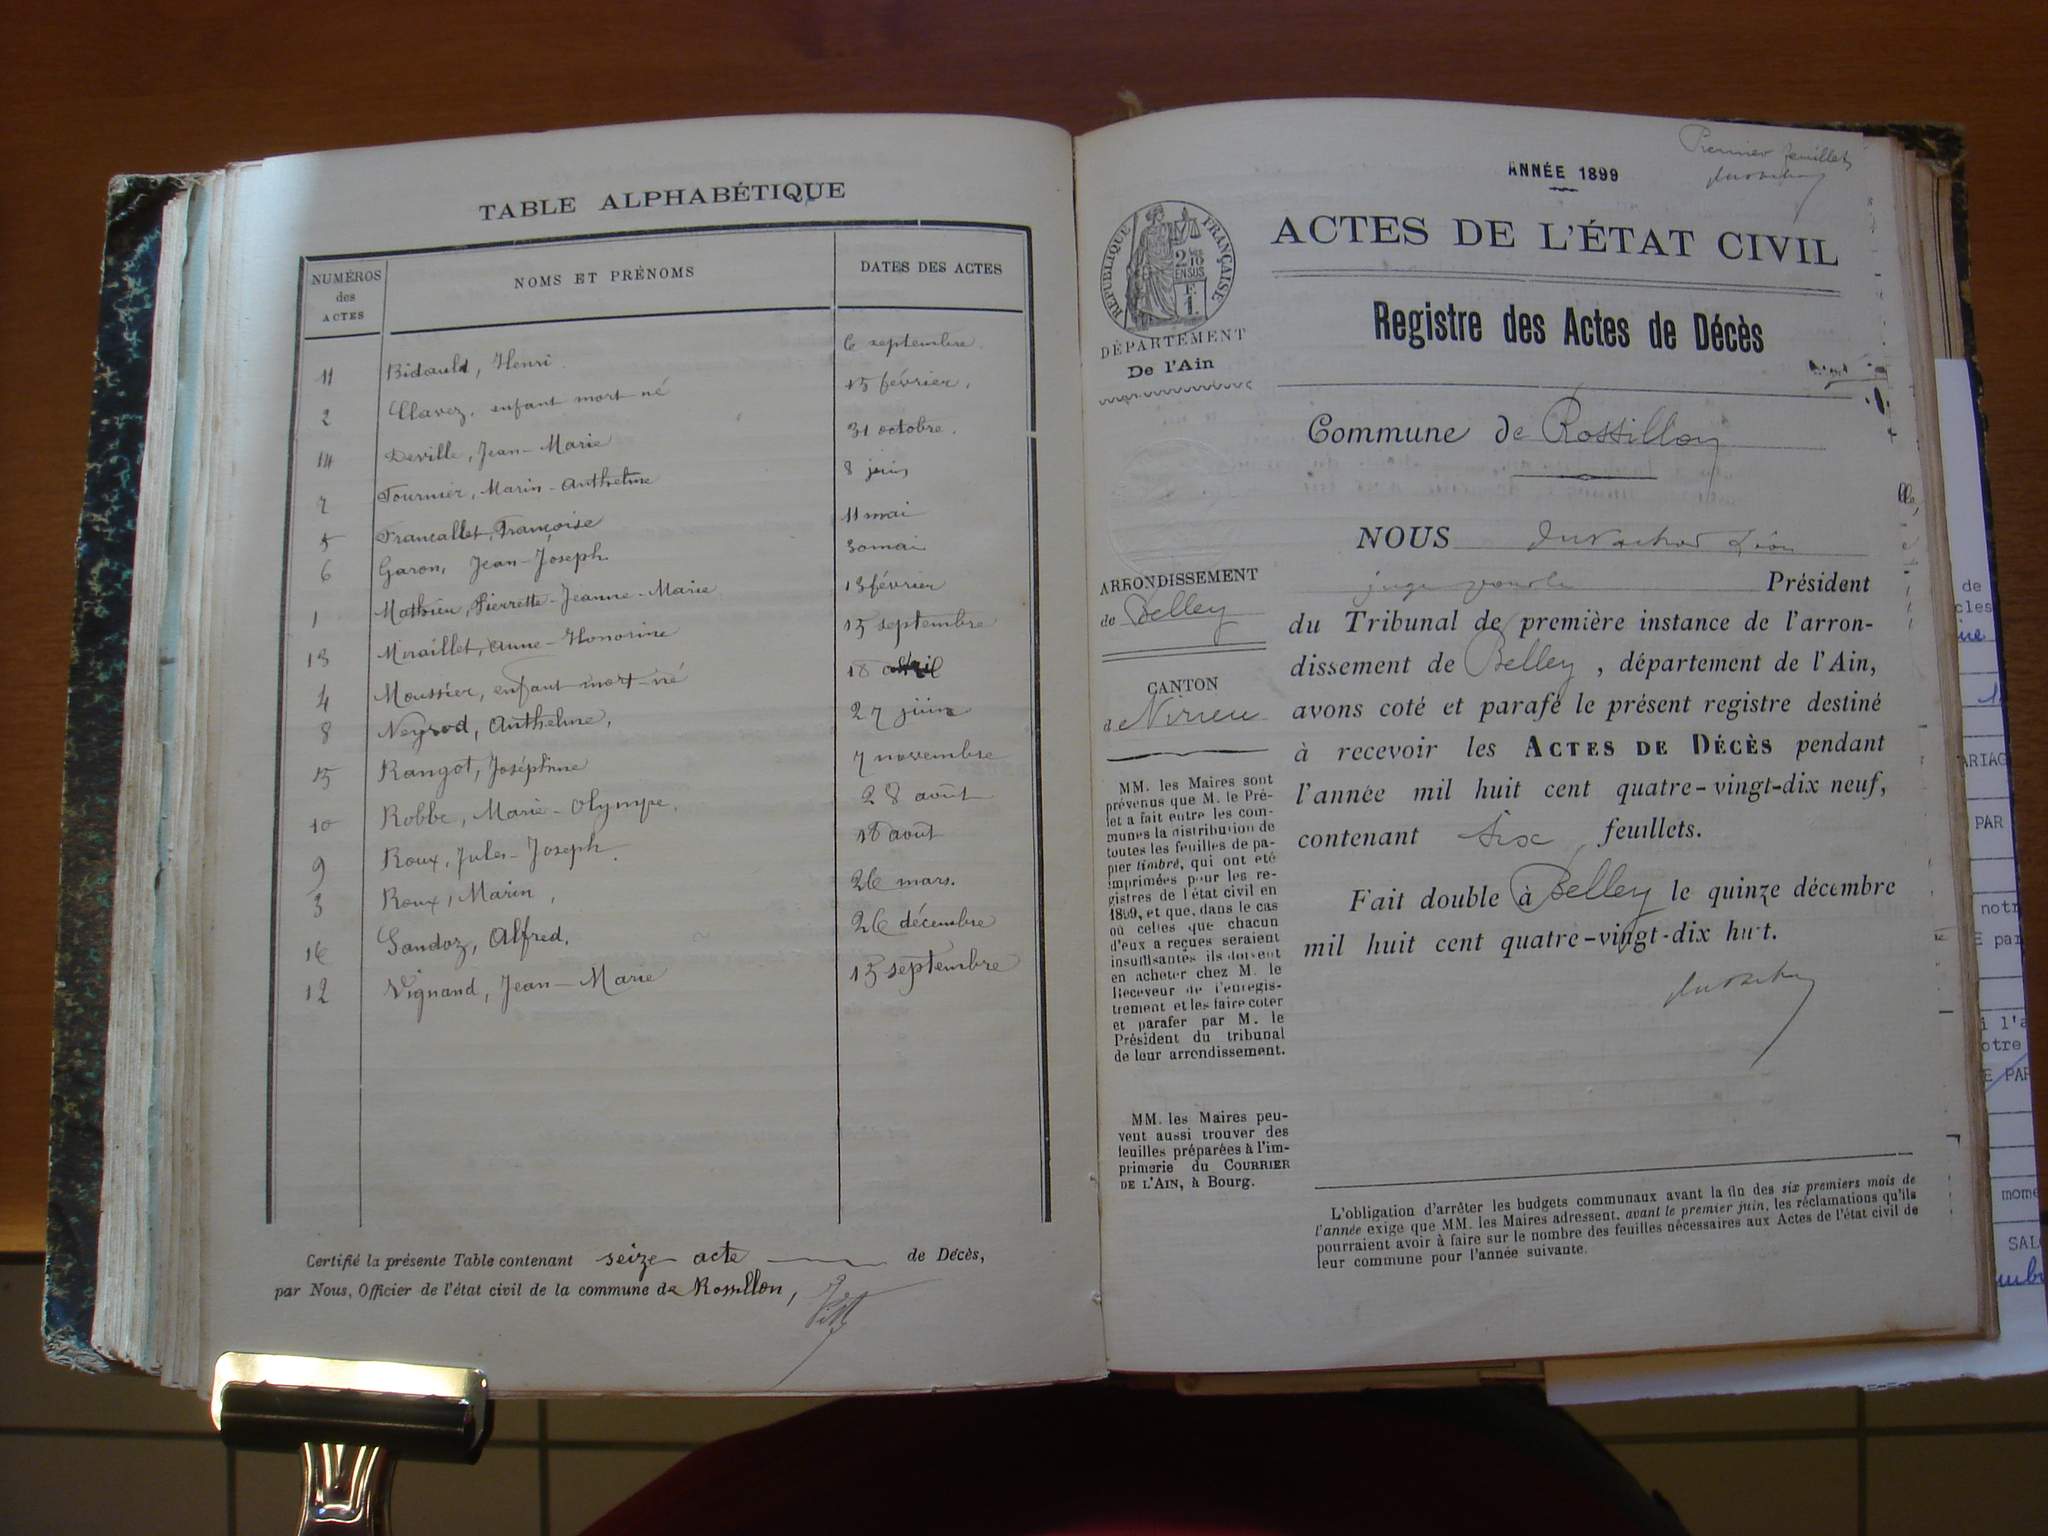 TABLE ALPHABÉTIQUE
NUMÉROS des ACTES
NOMS ET PRÉNOMS
DATES DES ACTES
11 Bidauld, Henri. 6 septembre.
2 Clavez, enfant mort né 15 février.
14 Deville, Jean-Marie 31 octobre.
7 Fournier, Marin-Anthelme 8 juin
5 Francallet, Françoise 11 mai
6 Garon, Jean-Joseph 30 mai
1 Mathieu, Pierrette-Jeanne-Marie 13 février
13 Miraillet, Anne-Honorine 15 septembre
4 Moussier, enfant mort-né 18 avril
8 Neyrod, Anthelme, 27 juin
15 Rangot, Joséphine 7 novembre
10 Robbe, Marie-Olympe, 28 août
9 Roux, Jules-Joseph. 18 août
3 Roux, Marin, 26 mars.
16 Sandoz, Alfred. 26 décembre
12 Vignand, Jean-Marie 13 septembre
Certifié la présente Table contenant seize acte de Décès,
par Nous, Officier de l'état civil de la commune de Rossillon,
Premier feuillet
ANNÉE 1899
ACTES DE L'ÉTAT CIVIL
RÉPUBLIQUE FRANÇAISE
2/10 EN SUS
F. 1.
DÉPARTEMENT
De l'Ain
Registre des Actes de Décès
Commune de Rossillon
ARRONDISSEMENT
de Belley
CANTON
de Virieu
MM. les Maires sont
prévenus que M. le Pré-
fet a fait entre les com-
munes la distribution de
toutes les feuilles de pa-
pier timbré, qui ont été
imprimées pour les re-
gistres de l'état civil en
1899, et que, dans le cas
où celles que chacun
d'eux a reçues seraient
insuffisantes ils doivent
en acheter chez M. le
Receveur de l'enregis-
trement et les faire coter
et parafer par M. le
Président du tribunal
de leur arrondissement.
MM. les Maires peu-
vent aussi trouver des
feuilles préparées à l'im-
primerie du COURRIER
DE L'AIN, à Bourg.
NOUS Léon
juge Président
du Tribunal de première instance de l'arron-
dissement de Belley, département de l'Ain,
avons coté et parafé le présent registre destiné
à recevoir les ACTES DE DÉCÈS pendant
l'année mil huit cent quatre-vingt-dix neuf,
contenant six feuillets.
Fait double à Belley le quinze décembre
mil huit cent quatre-vingt-dix huit.
L'obligation d'arrêter les budgets communaux avant la fin des six premiers mois de
l'année exige que MM. les Maires adressent, avant le premier juin, les réclamations qu'ils
pourraient avoir à faire sur le nombre des feuilles nécessaires aux Actes de l'état civil de
leur commune pour l'année suivante.